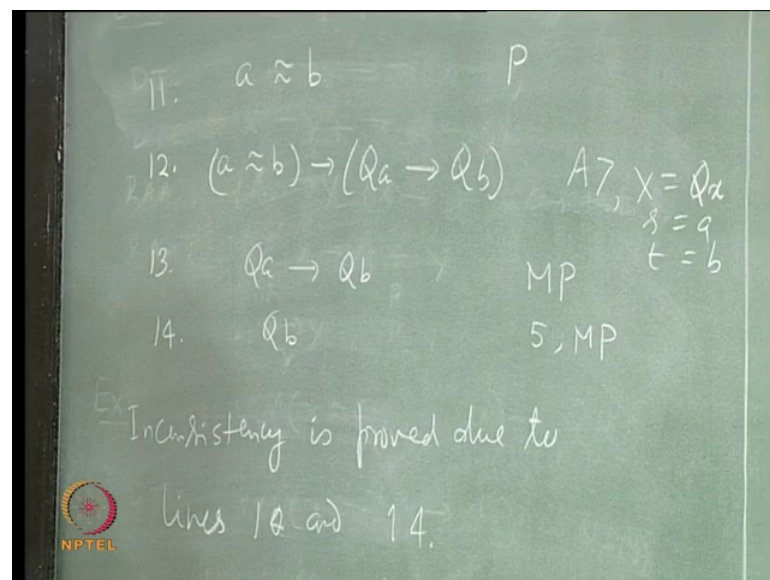 11. a ≈ b P
12. (a ≈ b) → (Qa → Qb) A7, X = Qx
s = a
t = b
13. Qa → Qb MP
14. Qb 5, MP
Inconsistency is proved due to
lines 10 and 14.
NPTEL